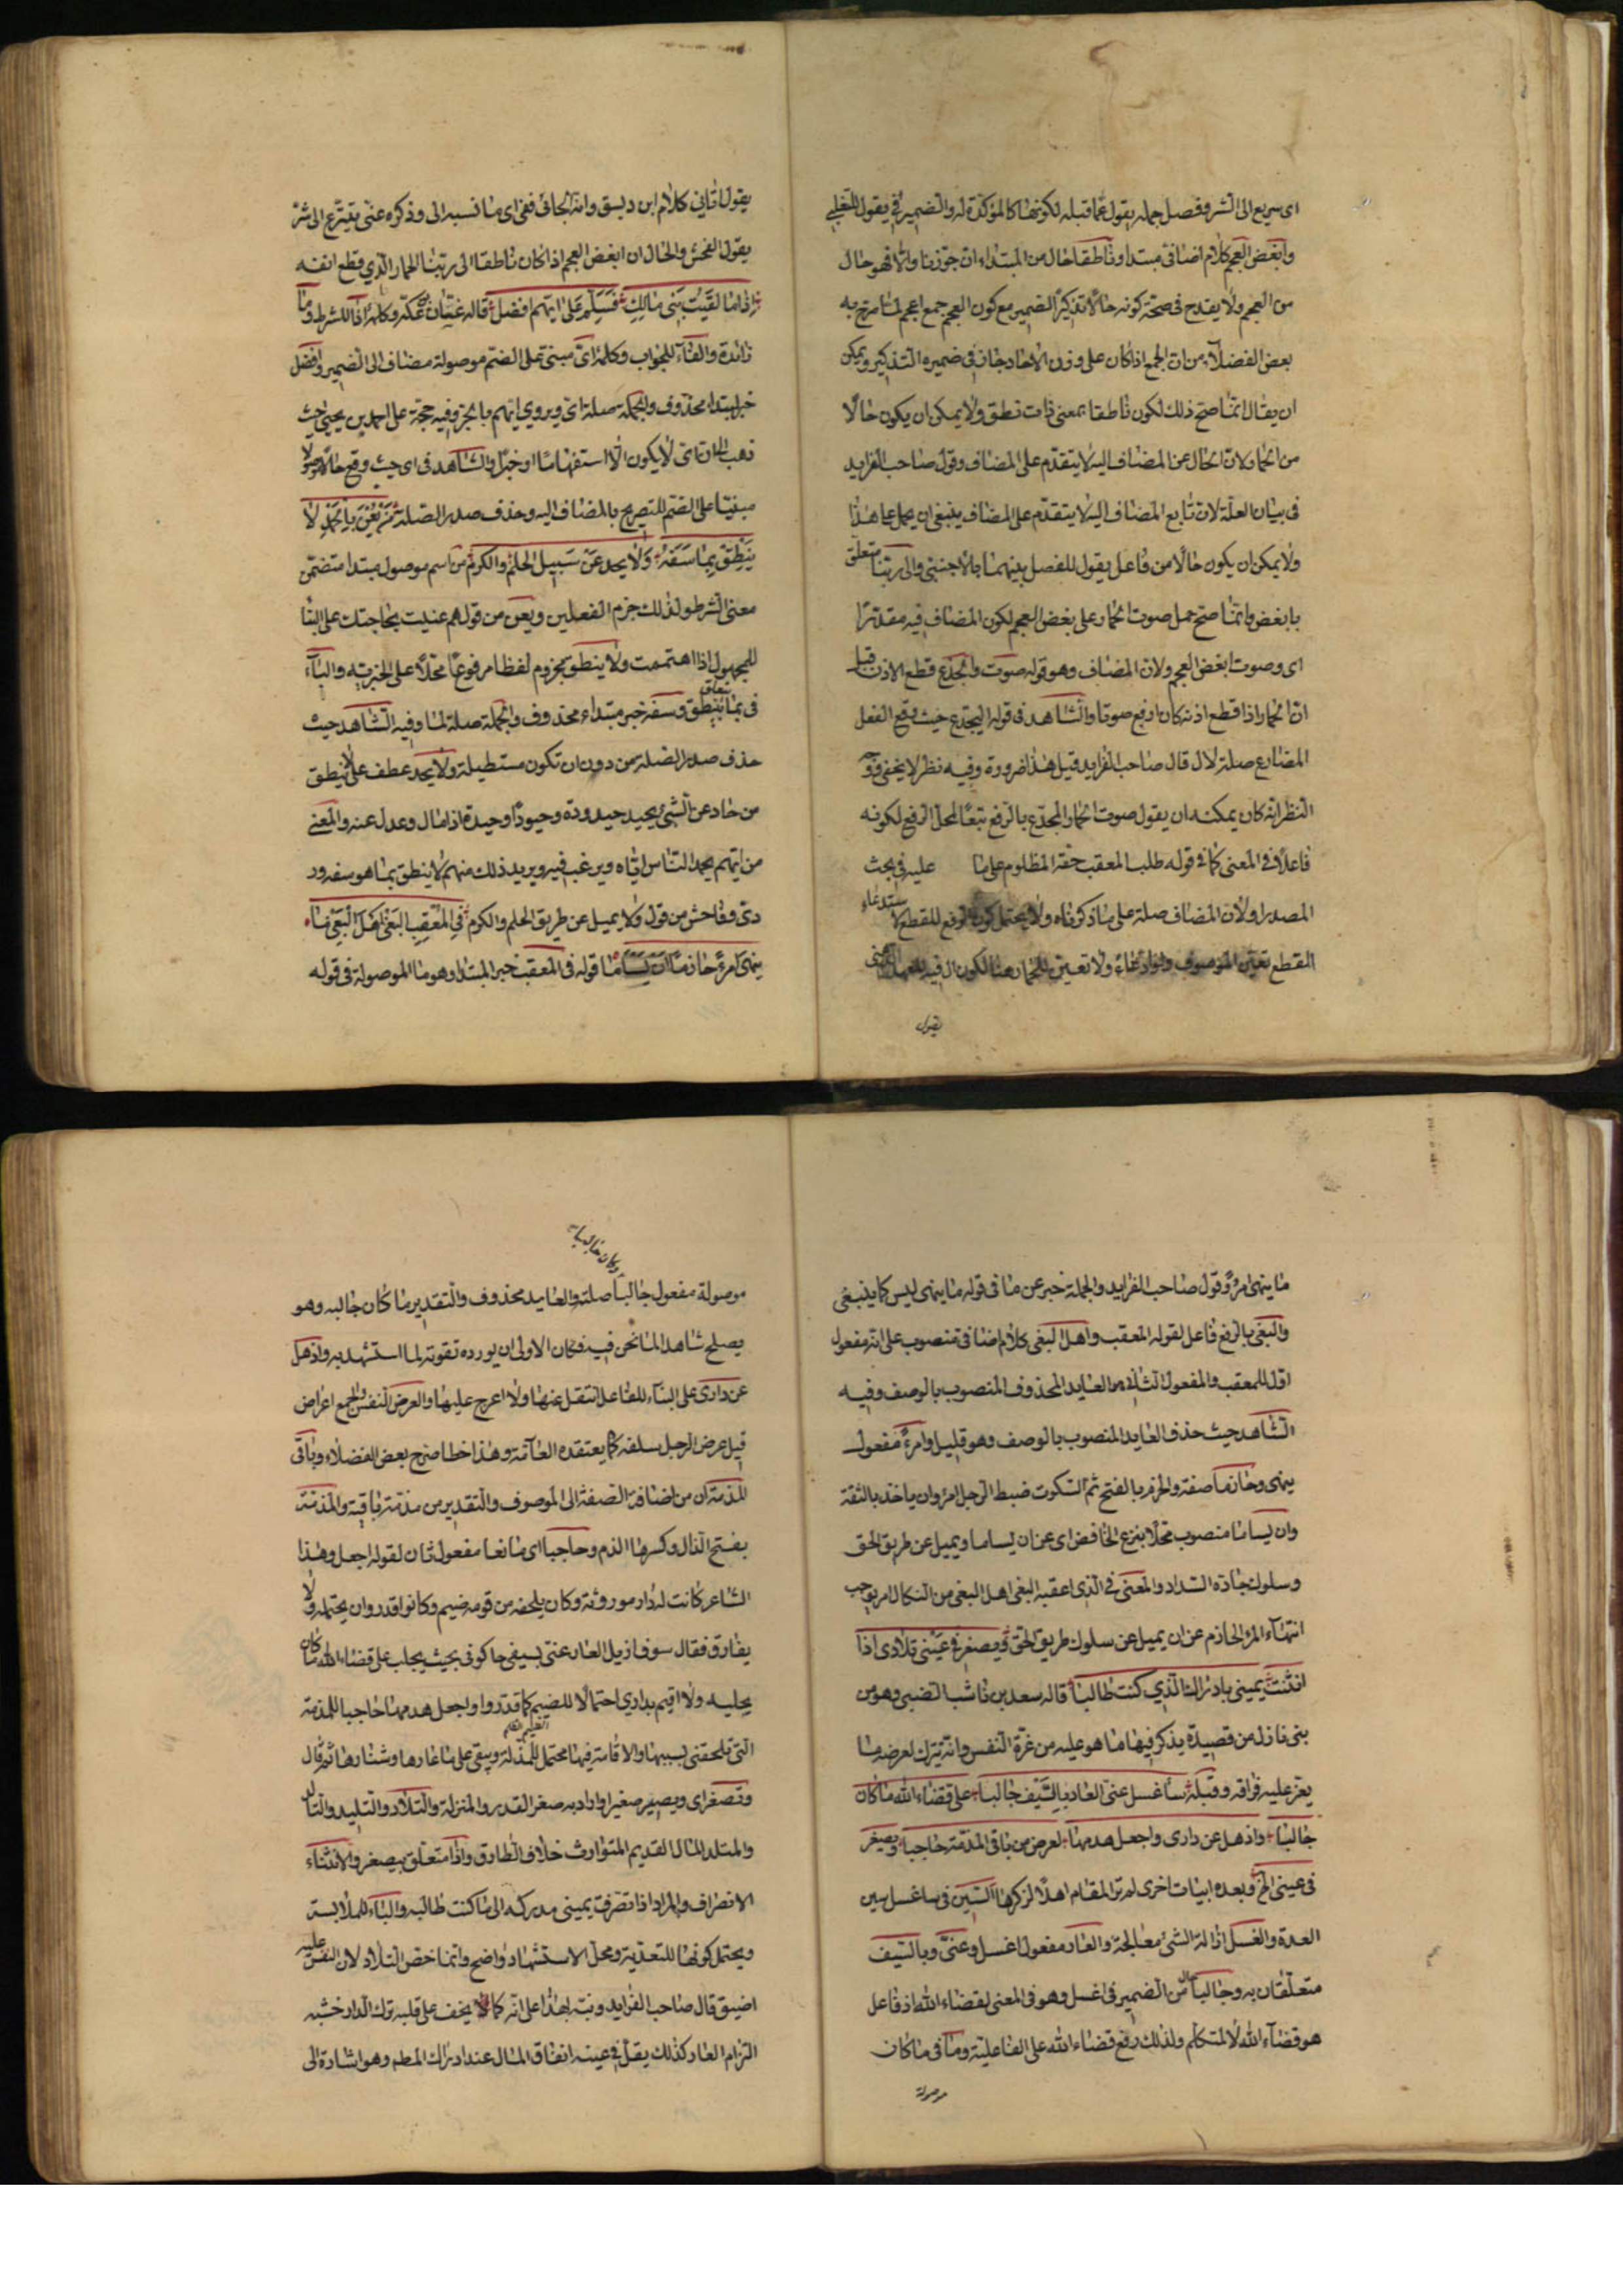 اى سريع الى الشر وفصل جمله يقول عما قبله لكونها كالمؤكدة له والضمير فى يقول للتغلبى
وابغض العجم كلام اضافى مبتدا وناطقا حال من المبتداء ان جوزنا والا فهو حال
من العجم ولا يقدح فى صحة كونه حالا تذكير الضمير مع كون العجم جمع اعجم لما صرح به
بعض الفضلاء من ان الجمع اذا كان على وزن الاحاد جاز فى ضميره التذكير ويمكن
ان يقال انما صح ذلك لكون ناطقا بمعنى ذات نطق ولا يمكن ان يكون حالا
من الحمار لان الحال عن المضاف اليه لا يتقدم على المضاف وقول صاحب الفرايد
فى بيان العلة لان تابع المضاف اليه لا يتقدم على المضاف ينبغى ان يحمل على هذا
ولا يمكن ان يكون حالا من فاعل يقول للفصل بينهما بالاجنبى والى ربنا متعلق
بابغض وانما صح حمل صوت الحمار على بغض العجم لكون المضاف فيه مقدرا
اى وصوت ابغض العجم ولان المضاف وهو قوله صوت والجدع قطع الاذن قيل
ان الحمار اذا قطع اذنه كان ارفع صوتا والشاهد فى قوله اليجدع حيث وقع الفعل
المضارع صلة لال قال صاحب الفرايد قيل هذا ضرورة وفيه نظر لا يخفى ووجه
النظر انه كان يمكنه ان يقول صوت الحمار المجدع بالرفع تبعا لمحل الرفع لكونه
فاعلا فى المعنى كما فى قوله طلب المعقب حقه المظلوم على ما عليه فى بحث
المصدر اولان المضاف صلة على ما ذكرناه ولا يحتمل كون الرفع للقطع لاستدعاء
القطع تعين الموصوف ولو ادعاء ولا تعين للحمار هنا لكون ال فيه للعهد الذهنى
يقول
يقول تانى كلام ابن ديسق وانه الجافى ففى اى ما نسبه الى وذكره عنى يتترع الى شر
يقول الفحش والحال ان ابغض العجم اذا كان ناطقا الى ربنا الحمار الذي قطع انفه
اذا ما لقيت بنى مالك فسلم على ايهم افضل قاله غسان وكلمة اذا للشرط وما
زائدة والفاء للجواب وكلمة اى مبنى على الضم موصولة مضاف الى الضمير وافضل
خبر لمبتدا محذوف والجملة صلة اى ويروى ايهم بالجر وفيه حجة على احمد بن يحيى حيث
ذهب الى ان اى لا يكون الا استفهاما او خبرا والشاهد فى اى حيث وقع حالا موصولا
مبنيا على الضم للتصريح بالمضاف اليه وحذف صدر الصلة من يعن بالحمد لا
ينطق بما سفه ولا يحد عن سبيل الحلم والكرم من اسم موصول مبتدا متضمن
معنى الشرط ولذلك جزم الفعلين ويعن من قولهم عنيت بحاجتك على البناء
للمجهول اذا اهتممت ولا ينطق مجزوم لفظا مرفوع محلا على الخبرية والباء
فى بما يتعلق بينطق وسفه خبر مبتداء محذوف والجملة صلة لما وفيه الشاهد حيث
حذف صدر الصلة من دون ان تكون مستطيلة ولا يحد عطف على لا ينطق
من حاد عن الشئ يحيد حيدودة وحيودا وحيدة اذا مال وعدل عنه والمعنى
من ايهم بحمد الناس اياه ويرغب فيه ويريد ذلك منهم لا ينطق بما هو سفه ور
دى وفاحش من قول ولا يميل عن طريق الحلم والكرم فى المعقب البغى اهل البغى ما
ينهى امرء حازما ان يساما قوله فى المعقب خبر المبتدا وهو ما الموصولة فى قوله
ما ينهى امرؤ وقول صاحب الفرايد والجملة خبر عن ما فى قوله ما ينهى ليس كما ينبغى
والبغى بالرفع فاعل لقوله المعقب واهل البغى كلام اضافى منصوب على انه مفعول
اول للمعقب والمفعول الثانى العايد المحذوف المنصوب بالوصف وفيه
الشاهد حيث حذف العايد المنصوب بالوصف وهو قليل وامرءً مفعول
ينهى وحازما صفته والحزم بالفتح ثم السكوت ضبط الرجل امره وان ياخذه بالثقة
وان يساما منصوب محلا بنزع الخافض اى عن ان يساما ويميل عن طريق الحق
وسلوك جادة السداد والمعنى فى الذى اعقبه البغى اهل البغى من النكال امر يوجب
انتهاء المرء الحازم عن ان يميل عن سلوك طريق الحق ويصغر فى عينى تلادى اذا
انثنت يمينى بادراك الذي كنت طالبا قاله سعد بن ناشب الضبى وهو من
بنى نازل من قصيدة يذكر فيها ما هو عليه من غرة النفس وانه يترك لعرضه ما
يعز عليه فراقه وقبله ساغسل عنى العار بالسيف جالبا على قضاء الله ما كان
جالبا واذهل عن دارى واجعل هدمها لعرضى من باقى المذمة حاجبا ويصغر
فى عينى الخ وبعده ابيات اخرى لم تر المقام اهلا لذكرها السين فى ساغسل سين
العدة والغسل ازالة الشئ معالجة والعار مفعول اغسل وعنى وبالسيف
متعلقان به وجالبا حال من الضمير فى اغسل وهو فى المعنى لقضاء الله اذ فاعل
هو قضاء الله لا المتكلم ولذلك رفع قضاء الله على الفاعلية وما فى ما كان
موصولة
موصولة مفعول جالبا صلة والعايد محذوف والتقدير ما كان جالبه وهو
يصلح شاهدا لما نحن فيه فكان الاولى ان يورده تقوية لما استشهد به واذهل
عن دارى على البناء للفاعل انتقل عنها ولا اعرج عليها والعرض النفس والجمع اعراض
قيل عرض الرجل سلفه كما يعتقده العامة وهذا خطا صرح بعض الفضلاء وباقى
المذمة ان من اضافة الصفة الى الموصوف والتقدير من مذمة باقية والمذمة
بفتح الذال وكسرها الذم وحاجبا اى مانعا مفعول ثان لقوله اجعل وهذا
الشاعر كانت له دار موروثة وكان يلحقه من قومه ضيم وكانوا قدروان يحتمله ولا
يفارق فقال سوف ازيل العار عنى بسيفى حا كونى بحيث يجلب على قضاء الله ما كان
يجلبه ولا اقيم بدارى احتمالا للضيم كما قدروا واجعل هدمها حاجبا للمذمة
التى تلحقنى بسببها والاقامة فيها محتمل للمذلة ويبقى على ما عارها وشنارها ثم قال
وتصغر اى ويصير صغيرا واراد به صغر القدر والمنزلة والتلاد والتليد والتالد
والمتلد المال القديم المتوارث خلاف الطارق واذا متعلق بيصغر والانثناء
الانصراف والمراد اذا تصرفت يمينى مدركه الى ما كنت طالبه والباء للملابسة
ويحتمل كونها للتعدية ومحل الاستشهاد واضح وانما خص التلاد لان النفس عليه
اضيق قال صاحب الفرايد ونبه بهذا على انه كما لا يخف على قلبه ترك الدار خشيه
التزام العار كذلك يقل فى عينه انفاق المال عند ادراك المطم وهو اشارة الى